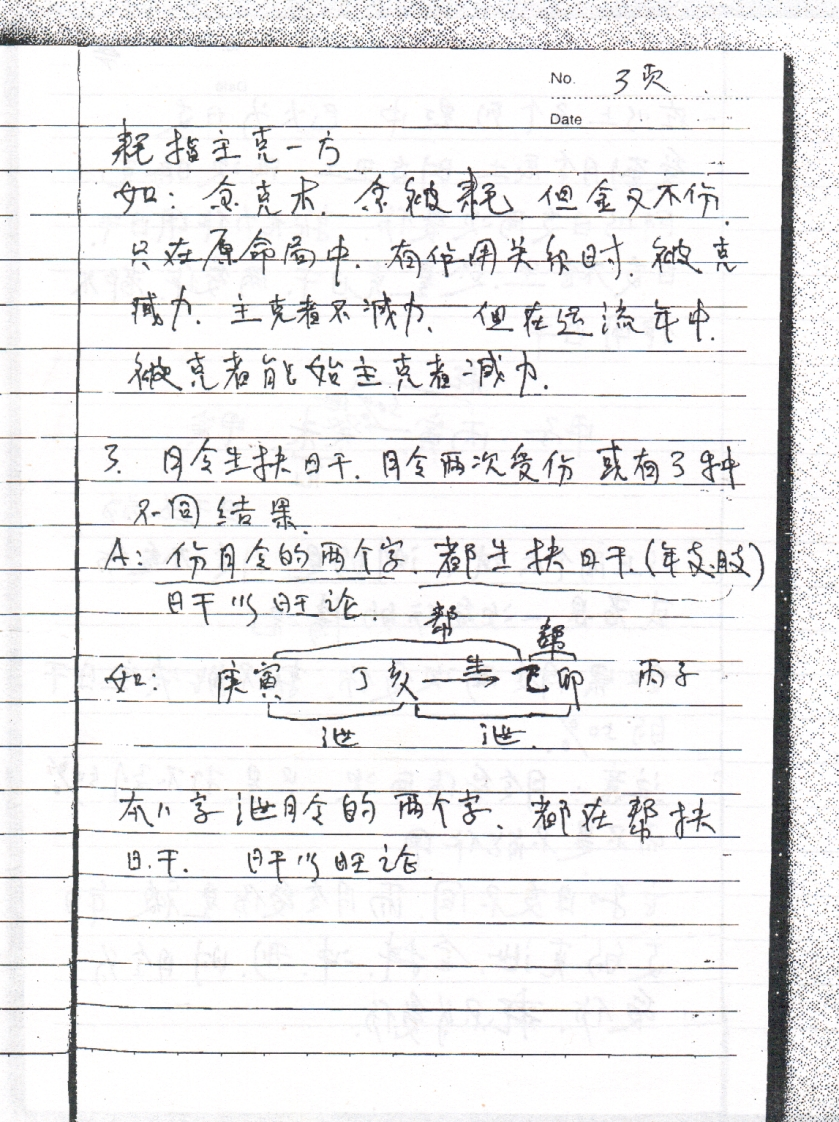 No. 3页
Date
耗指主克一方
如：金克木．金被耗．但金又不伤．
只在原命局中．有作用关系时．被克
减力．主克者不减力．但在运流年中．
被克者能始主克者减力．
3. 月令生扶日干．月令两次受伤 或有3种
不同结果．
A：伤月令的两个字．都生扶日干．(年支．时支)
日干以旺论．
帮 帮
如： 庚寅 丁亥 生 乙卯 丙子
泄 泄．
本八字泄月令的两个字．都在帮扶
日．干． 日干以旺论．